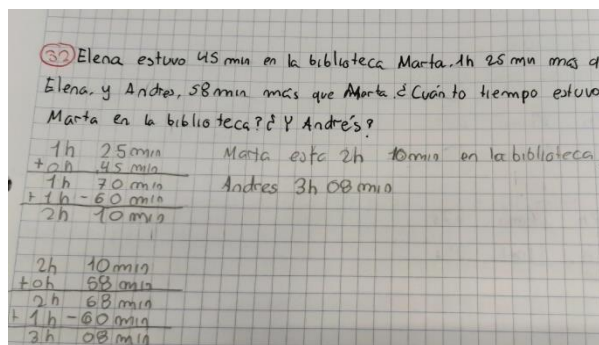 32 Elena estuvo 45 min en la biblioteca Marta. 1h 25 mn mas q
Elena, y Andres, 58 min más que Marta. ¿Cuánto tiempo estuvo
Marta en la biblioteca? ¿Y Andrés?
1h 25 min
+0h 45 min
1h 70 min
+1h -60 min
2h 10 min
Marta esta 2h 10 min en la biblioteca
Andres 3h 08 min
2h 10 min
+0h 58 min
2h 68 min
+1h -60 min
3h 08 min